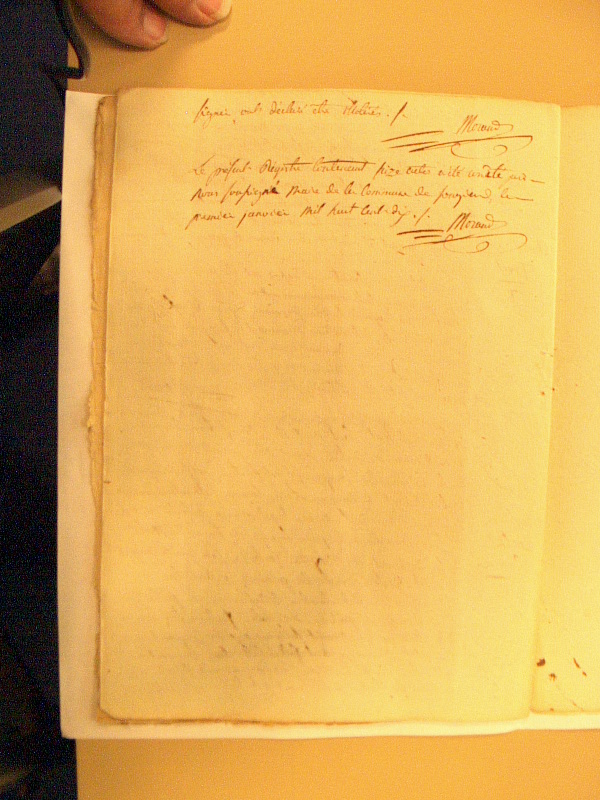 signer, ont déclaré être illettrés ./.
Morand
Le présent Registre contenant seize actes a été arrêté par
Nous soussigné Maire de la Commune de le
premier janvier Mil huit cent dix ./.
Morand